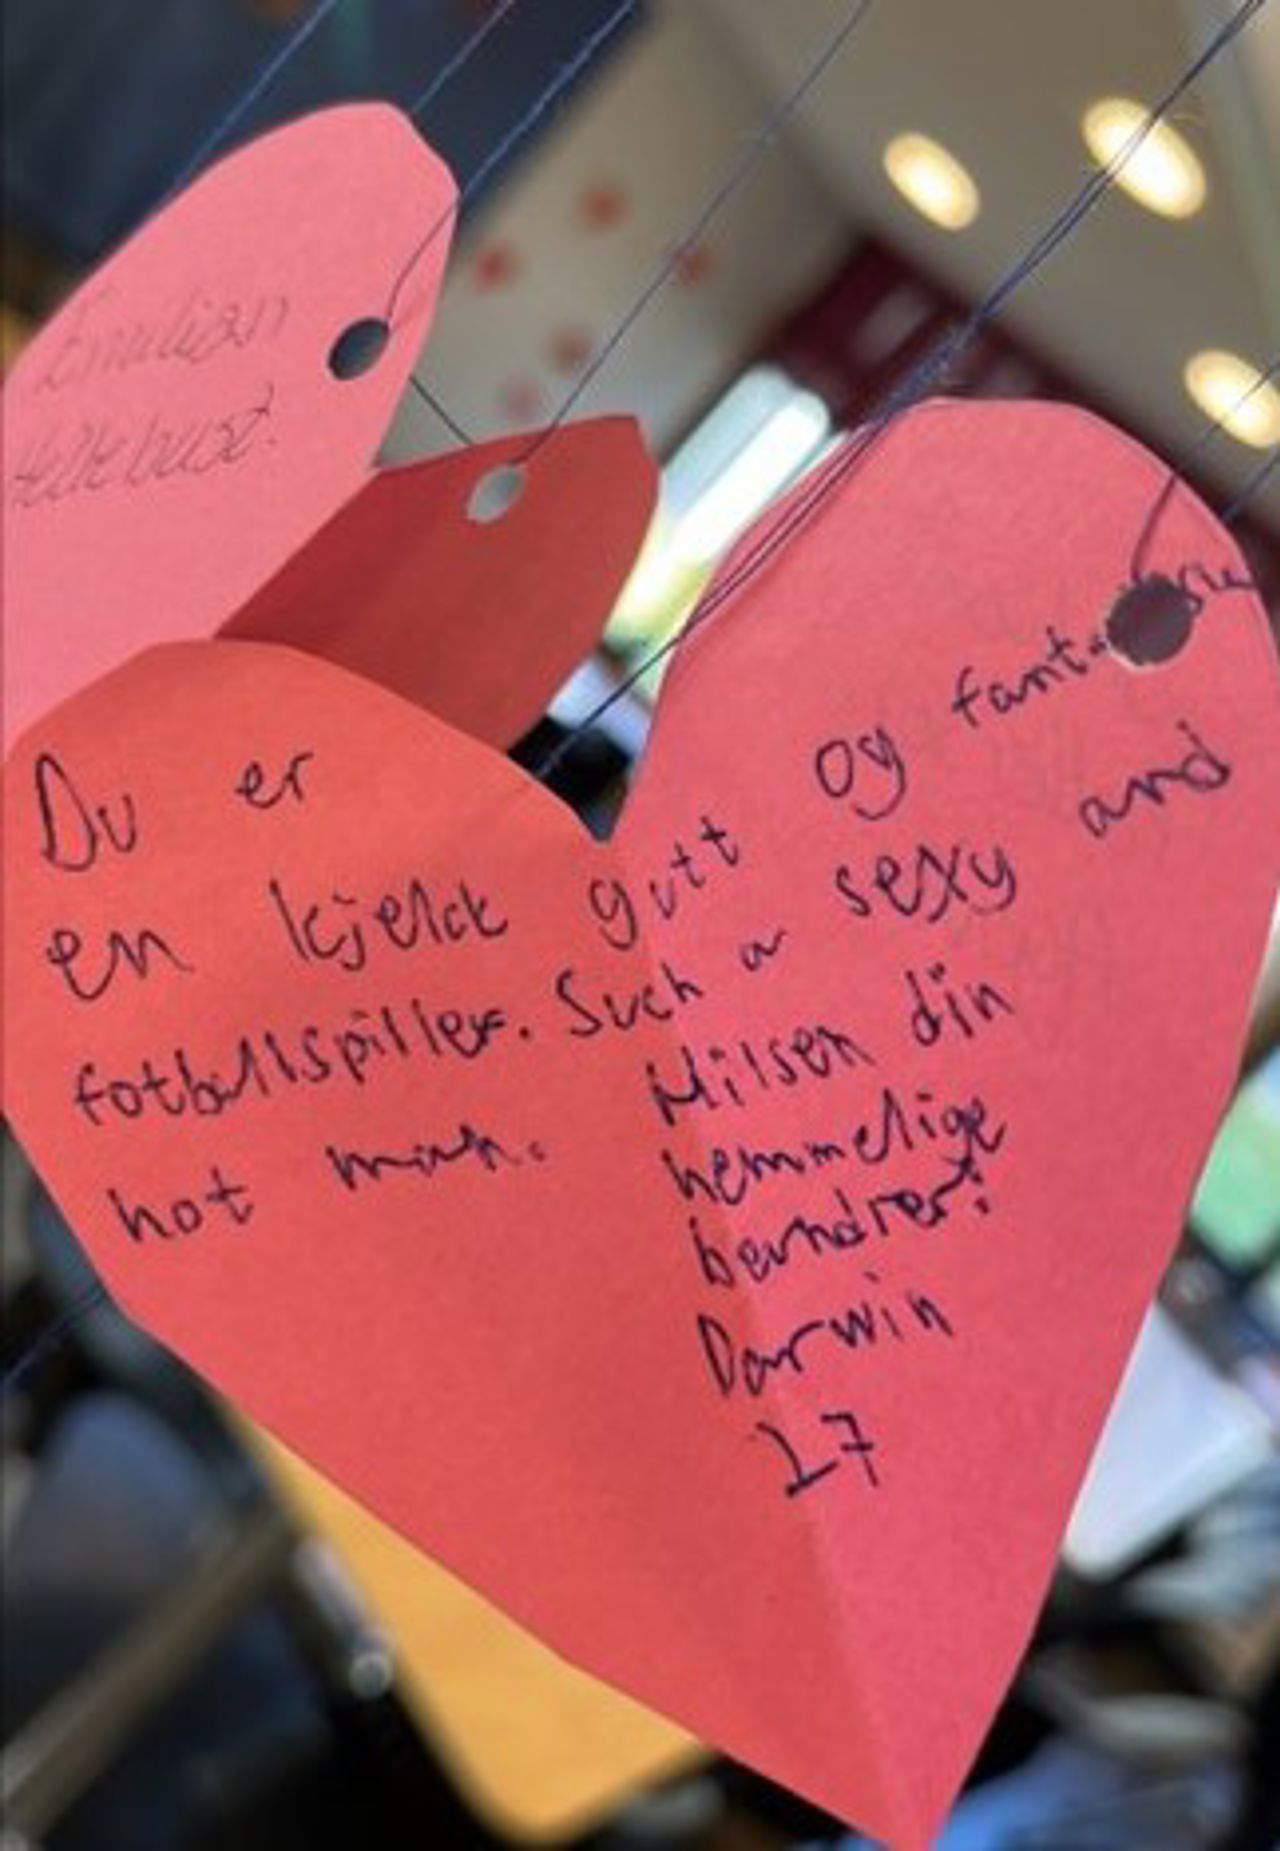 Emilian
Du er
en kjekk gutt og fant
fotballspiller. Such a sexy and
hot man.
Hilsen din
hemmelige
beundrer:
Darwin
17